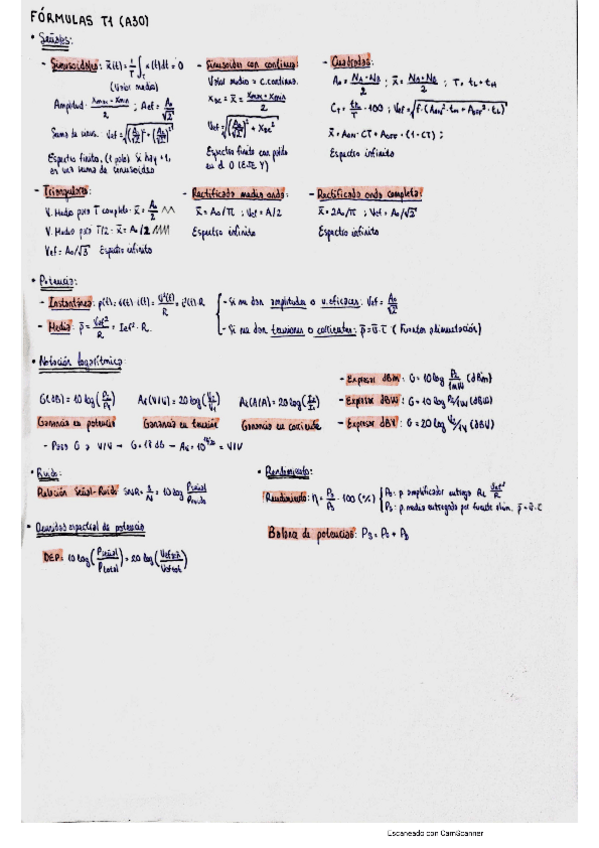 FÓRMULAS T1 (A30)
• Señales:
- Sinusoidales: x̄(t) = 1/T ∫_T x(t)dt = 0
(Valor medio)
Amplitud: (xmax - xmin)/2 ; Aef = A₀/√2
Suma de sinus. Vef = √((A₀/√2)² + (A₁/√2)²)
Espectro finito, (1 palo) Si hay + 1,
es una suma de sinusoides
- Sinusoides con continua:
Valor medio = c. continua.
x_DC = x̄ = (xmax + xmin)/2
Vef = √((A₀/√2)² + x_DC²)
Espectro finito con palito
en el 0 (EJE Y)
- Cuadradas:
A₀ = (NA - NB)/2 ; x̄ = (NA + NB)/2 ; T = tL + tH
CT = tH/T · 100 ; Vef = √(f·(AON²·tH + AOFF²·tL))
x̄ = AON · CT + AOFF · (1 - CT) ;
Espectro infinito
- Triangulares:
V. Medio para T completo: x̄ = A₀/2
V. Medio para T/2: x̄ = A₀/2
Vef = A₀/√3 Espectro infinito
- Rectificada media onda:
x̄ = A₀/π ; Vef = A/2
Espectro infinito
- Rectificada onda completa:
x̄ = 2A₀/π ; Vef = A₀/√2
Espectro infinito
• Potencia:
- Instantánea: p(t) = v(t) · i(t) = v²(t)/R = i²(t)·R
- Media: p̄ = Vef²/R = Ief² · R.
- Si me dan amplitudes o v. eficaces: Vef = A₀/√2
- Si me dan tensiones o corrientes: p̄ = v̄ · ī (Fuentes alimentación)
• Notación logarítmica:
G(dB) = 10 log(P₂/P₁) Av(V/V) = 20 log(V₂/V₁) Ai(A/A) = 20 log(I₂/I₁)
Ganancia en potencia Ganancia en tensión Ganancia en corriente
- Expresar dBm: G = 10 log P₂/1mW (dBm)
- Expresar dBW: G = 10 log P₂/1W (dBW)
- Expresar dBV: G = 20 log V₂/1V (dBV)
- Paso G a V/V → G = 18 dB → Av = 10^(G/20) = V/V
• Ruido:
Relación Señal-Ruido SNR = S/N = 10 log Pseñal/Pruido
• Rendimiento:
Rendimiento: η = PL/PS · 100 (%)
PL: p. amplificador entrega RL Vef²/R
PS: p. media entregada por fuente alim. p̄ = v̄ · ī
• Densidad espectral de potencia
DEP = 10 log(Pseñal/Ptotal) = 20 log(Vefseñ/Veftot)
Balance de potencias:
Escaneado con CamScanner